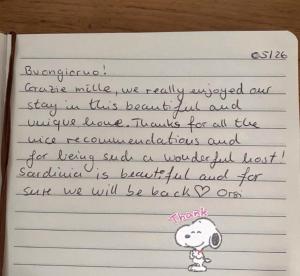 05/26
Buongiorno!
Grazie mille, we really enjoyed our
stay in this beautiful and
unique home. Thanks for all the
nice recommendations and
for being such a wonderful host!
Sardinia is beautiful and for
sure we will be back♡ Orsi
Thank